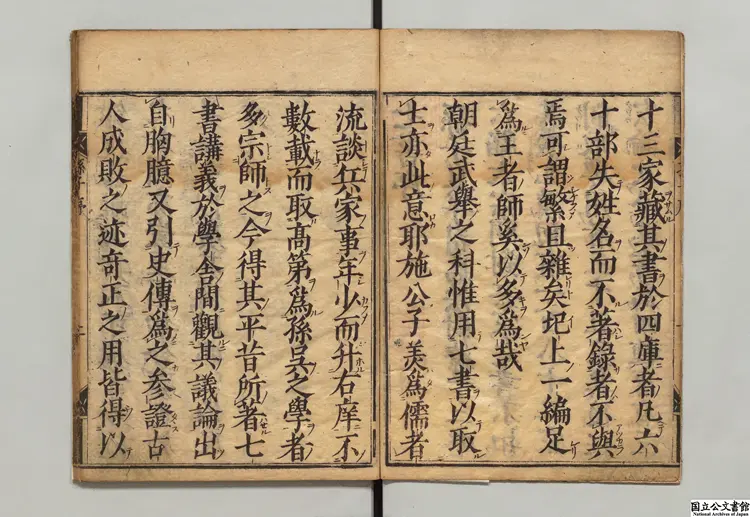 十三家藏其書於四庫者凡六
十部失姓名而不著錄者不與
焉可謂繁且雜矣圯上一編足
爲王者師奚以多爲哉
朝廷武舉之科惟用七書以取
士亦此意耶施公子美爲儒者
流談兵家事年少而升右庠不
數載而取高第爲孫吳之學者
多宗師之今得其平昔所著七
書講義於學舍間觀其議論出
自胸臆又引史傳爲之參證古
人成敗之迹奇正之用皆得以
国立公文書館
National Archives of Japan